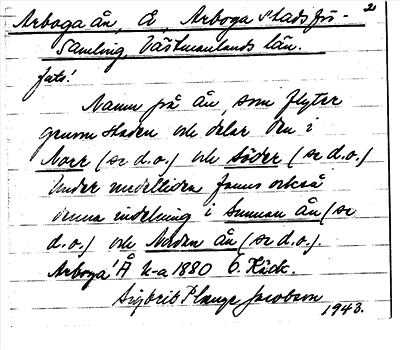 2
Arboga ån, Å, Arboga stadsför-
samling, Västmanlands län.
fats!
Namn på ån, som flyter
genom staden och delar den i
Norr (se d.o.) och Söder (se d.o.)
Under medeltiden fanns också
denna indelning i Sunnan ån (se
d.o.) och Nordan ån (se d.o.).
Arboga Å k-a 1880 6. Käck.
Sigbrit Plange Jacobson
1943.